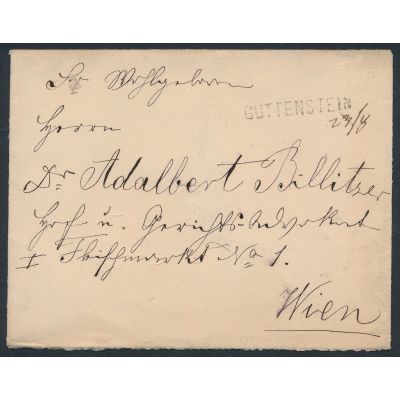 Sr Wohlgeboren
GUTTENSTEIN
23/8
Herrn
Dr Adalbert Billitzer
Hof u. Gerichts Advokat
I Fleischmarkt No 1.
Wien